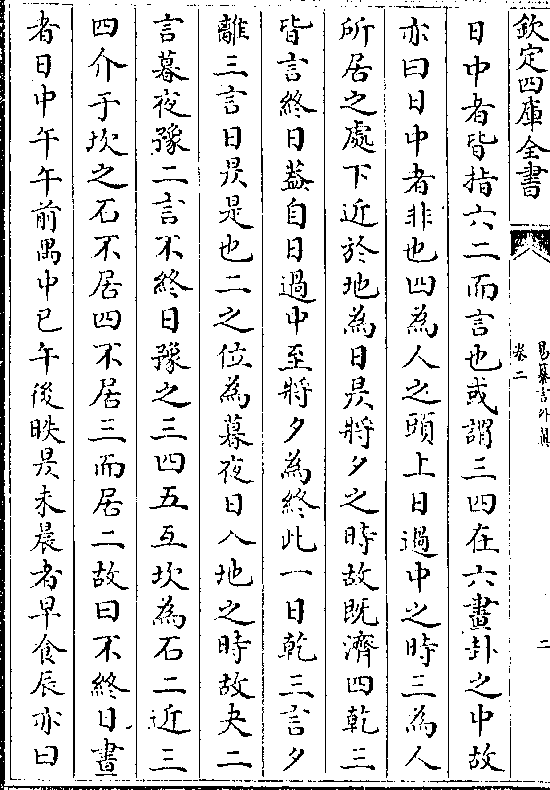 欽定四庫全書
易纂言外翼
卷二
二
日中者皆指六二而言也或謂三四在六畫卦之中故
亦曰日中者非也四為人之頭上日過中之時三為人
所居之處下近於地為日昃將夕之時故既濟四乾三
皆言終日葢自日過中至將夕為終此一日乾三言夕
離三言日昃是也二之位為暮夜日入地之時故夬二
言暮夜豫二言不終日豫之三四五互坎為石二近三
四介于坎之石不居四不居三而居二故曰不終日晝
者日中午午前禺中巳午後昳昃未晨者早食辰亦曰